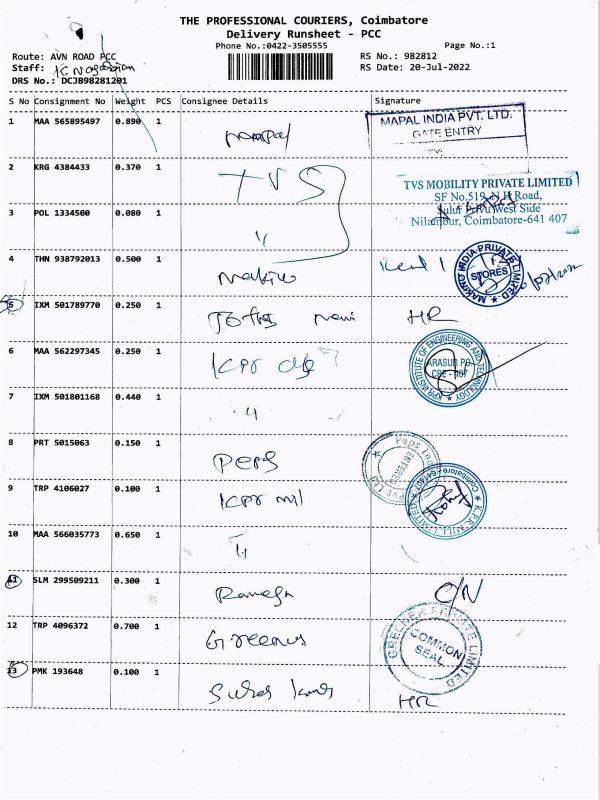 THE PROFESSIONAL COURIERS, Coimbatore
Delivery Runsheet - PCC
Phone No.:0422-3505555
Page No.:1
Route: AVN ROAD PCC
RS No.: 982812
Staff:
RS Date: 20-Jul-2022
DRS No.: DCJB98281201
S No Consignment No Weight PCS Consignee Details Signature
1 MAA 565895497 0.890 1 MAPAL INDIA PVT. LTD.
GATE ENTRY
2 KRG 4384433 0.370 1 TVS
TVS MOBILITY PRIVATE LIMITED
SF No.519, N.H Road,
West Side
3 POL 1334500 0.080 1 "
Nilambur, Coimbatore-641 407
4 THN 938792013 0.500 1 Makino
MAKINO INDIA PRIVATE LIMITED
STORES
5 IXM 501789770 0.250 1 HR
6 MAA 562297345 0.250 1 KPR clg
KPR INSTITUTE OF ENGINEERING AND TECHNOLOGY
ARASUR PO.
CBE - 407
7 IXM 501801168 0.440 1 "
8 PRT 5015063 0.150 1 Peps
9 TRP 4106027 0.100 1 KPR mil
K.P.R. MILL LIMITED
Coimbatore-641407
10 MAA 566035773 0.650 1 "
11 SLM 299509211 0.300 1 Ramesh O/N
12 TRP 4096372 0.700 1
PRIVATE LIMITED
COMMON
SEAL
13 PMK 193648 0.100 1 HR